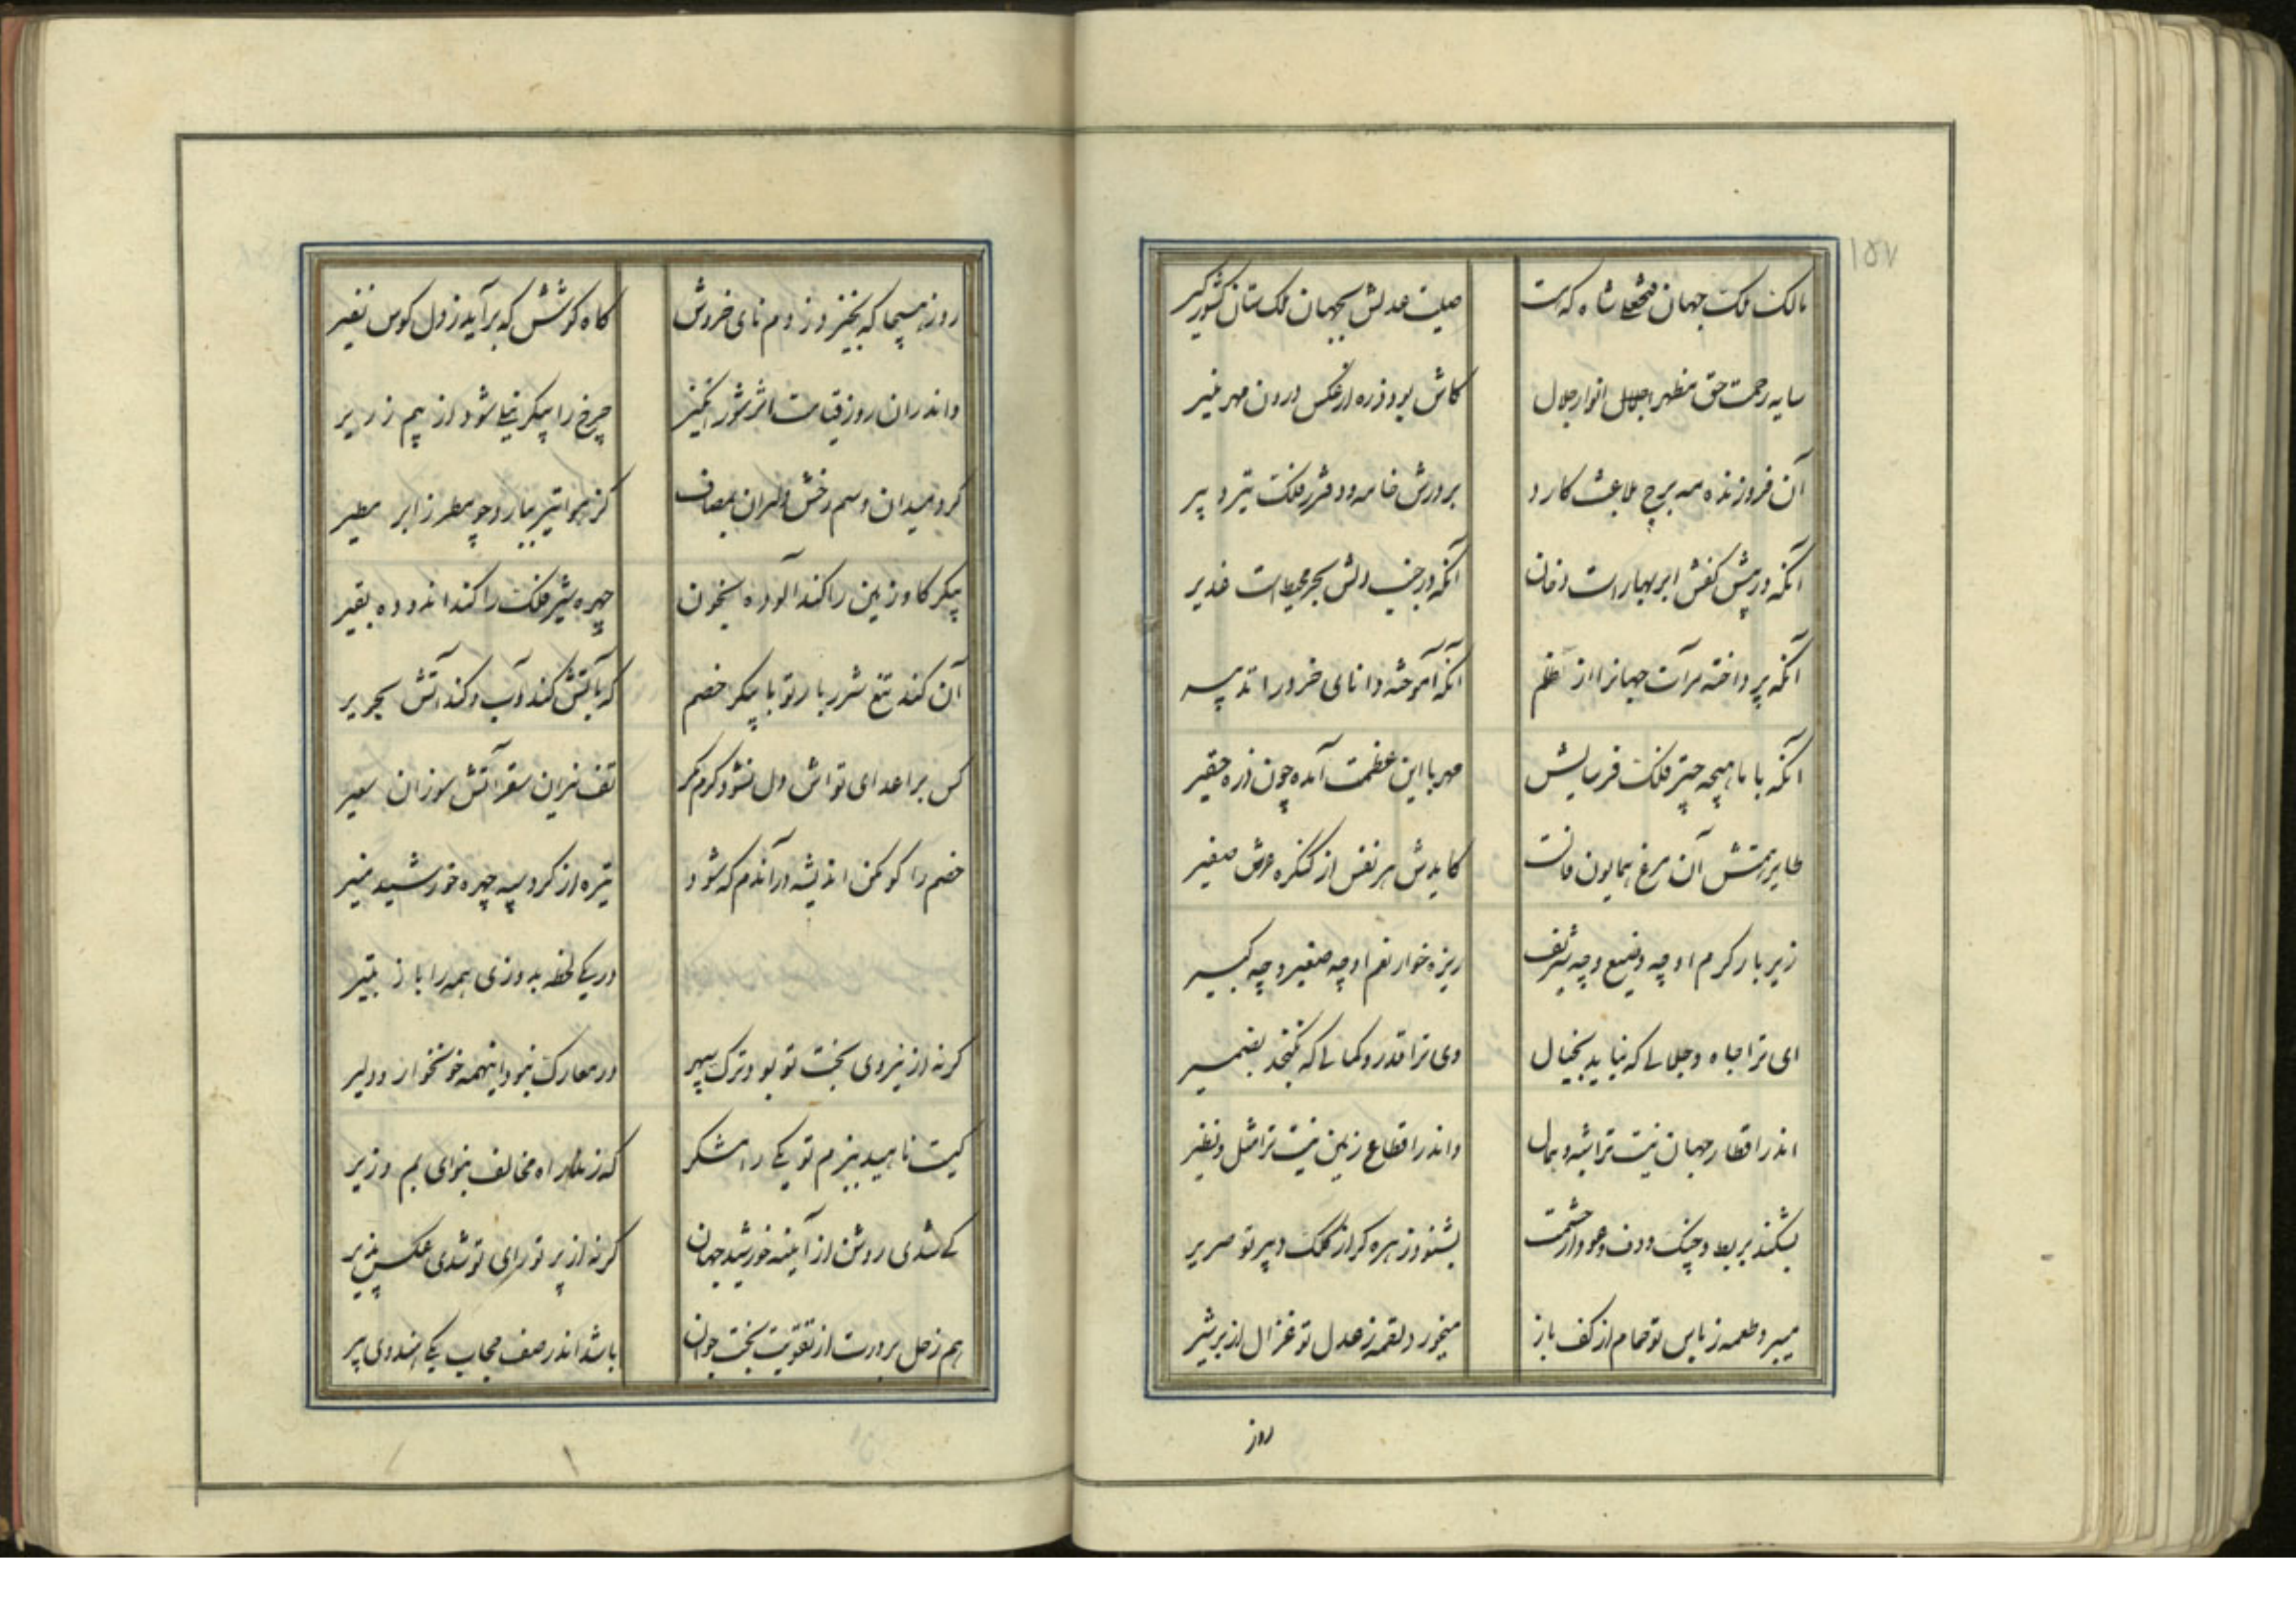 ۱۵۷
مالک ملک جهان فتحعلی شاه که هست
صیت عدلش بجهان ملک ستان کشورگیر
سایه رحمت حق مظهر اجلال انوار جلال
کاش بود ذره از عکس درون مهر منیر
آن فروزنده مه برج که
بر درش خامه و دفتر فلک تیر دبیر
آنکه در پیش کفش ابر بهار است دخان
آنکه در جنب دلش بحر محیط است غدیر
آنکه پرداخته مرآت جهانرا از ظلم
آنکه آموخته دانای خرد را تدبیر
آنکه با ماهچه چتر فلک فرسایش
مهر با این عظمت آمده چون ذره حقیر
طایر همتش آن مرغ همایون فالست
کایدش هر نفس از کنگره عرش صفیر
زیر بار کرم او چه وضیع و چه شریف
ریزه خوار نعم او چه صغیر و چه کبیر
ای ترا جاه و جلالی که نیاید بخیال
وی ترا قدر و کمالی که نگنجد بضمیر
اندر اقطار جهان نیست ترا شبه و همال
واندر اقطاع زمین نیست ترا مثل و نظیر
بشکند بربط و چنگ و دف و عود از حشمت
بشنود زهره گر از کلک دبیر تو صریر
میبرد طعمه ز باس تو حمام از کف باز
میخورد لقمه ز عدل تو غزال از بر شیر
روز
روز هیجا که بخیزد ز دم نای خروش
گاه کوشش که برآید ز دل کوس نفیر
واندران روز قیامت اثر شور انگیز
چرخ را پیکر نیلی شود از بیم زریر
گرد میدان و سم رخش دلیران بمصاف
کز هوا تیر ببارد چو مطر ز ابر مطیر
پیکر گاو زمین را کند آلوده بخون
چهره شیر فلک را کند اندوده بقیر
آن کند تیغ شرربار تو با پیکر خصم
که به آتش کند آب و کند آتش بحریر
کس بر اعدای تواش دل نشود گرم مگر
تف نیران سقر آتش سوزان سعیر
خصم را گو مکن اندیشه در آندم که شود
تیره از گرد سیه چهره خورشید منیر
در یکی لحظه بدوزی همه را باز بتیر
گر نه از نیروی بخت تو بود ترک سپهر
در معارک نبود اینهمه خونخوار و دلیر
کیست ناهید ببزم تو یکی رامشگر
که زند راه مخالف بنوای بم و زیر
کی شدی روشن از آیینه خورشید جهان
گر نه از پرتو رای تو شدی عکس پذیر
هم زحل بر درت از تقویت بخت جوان
باشد اندر صف حجاب یکی هندوی پیر